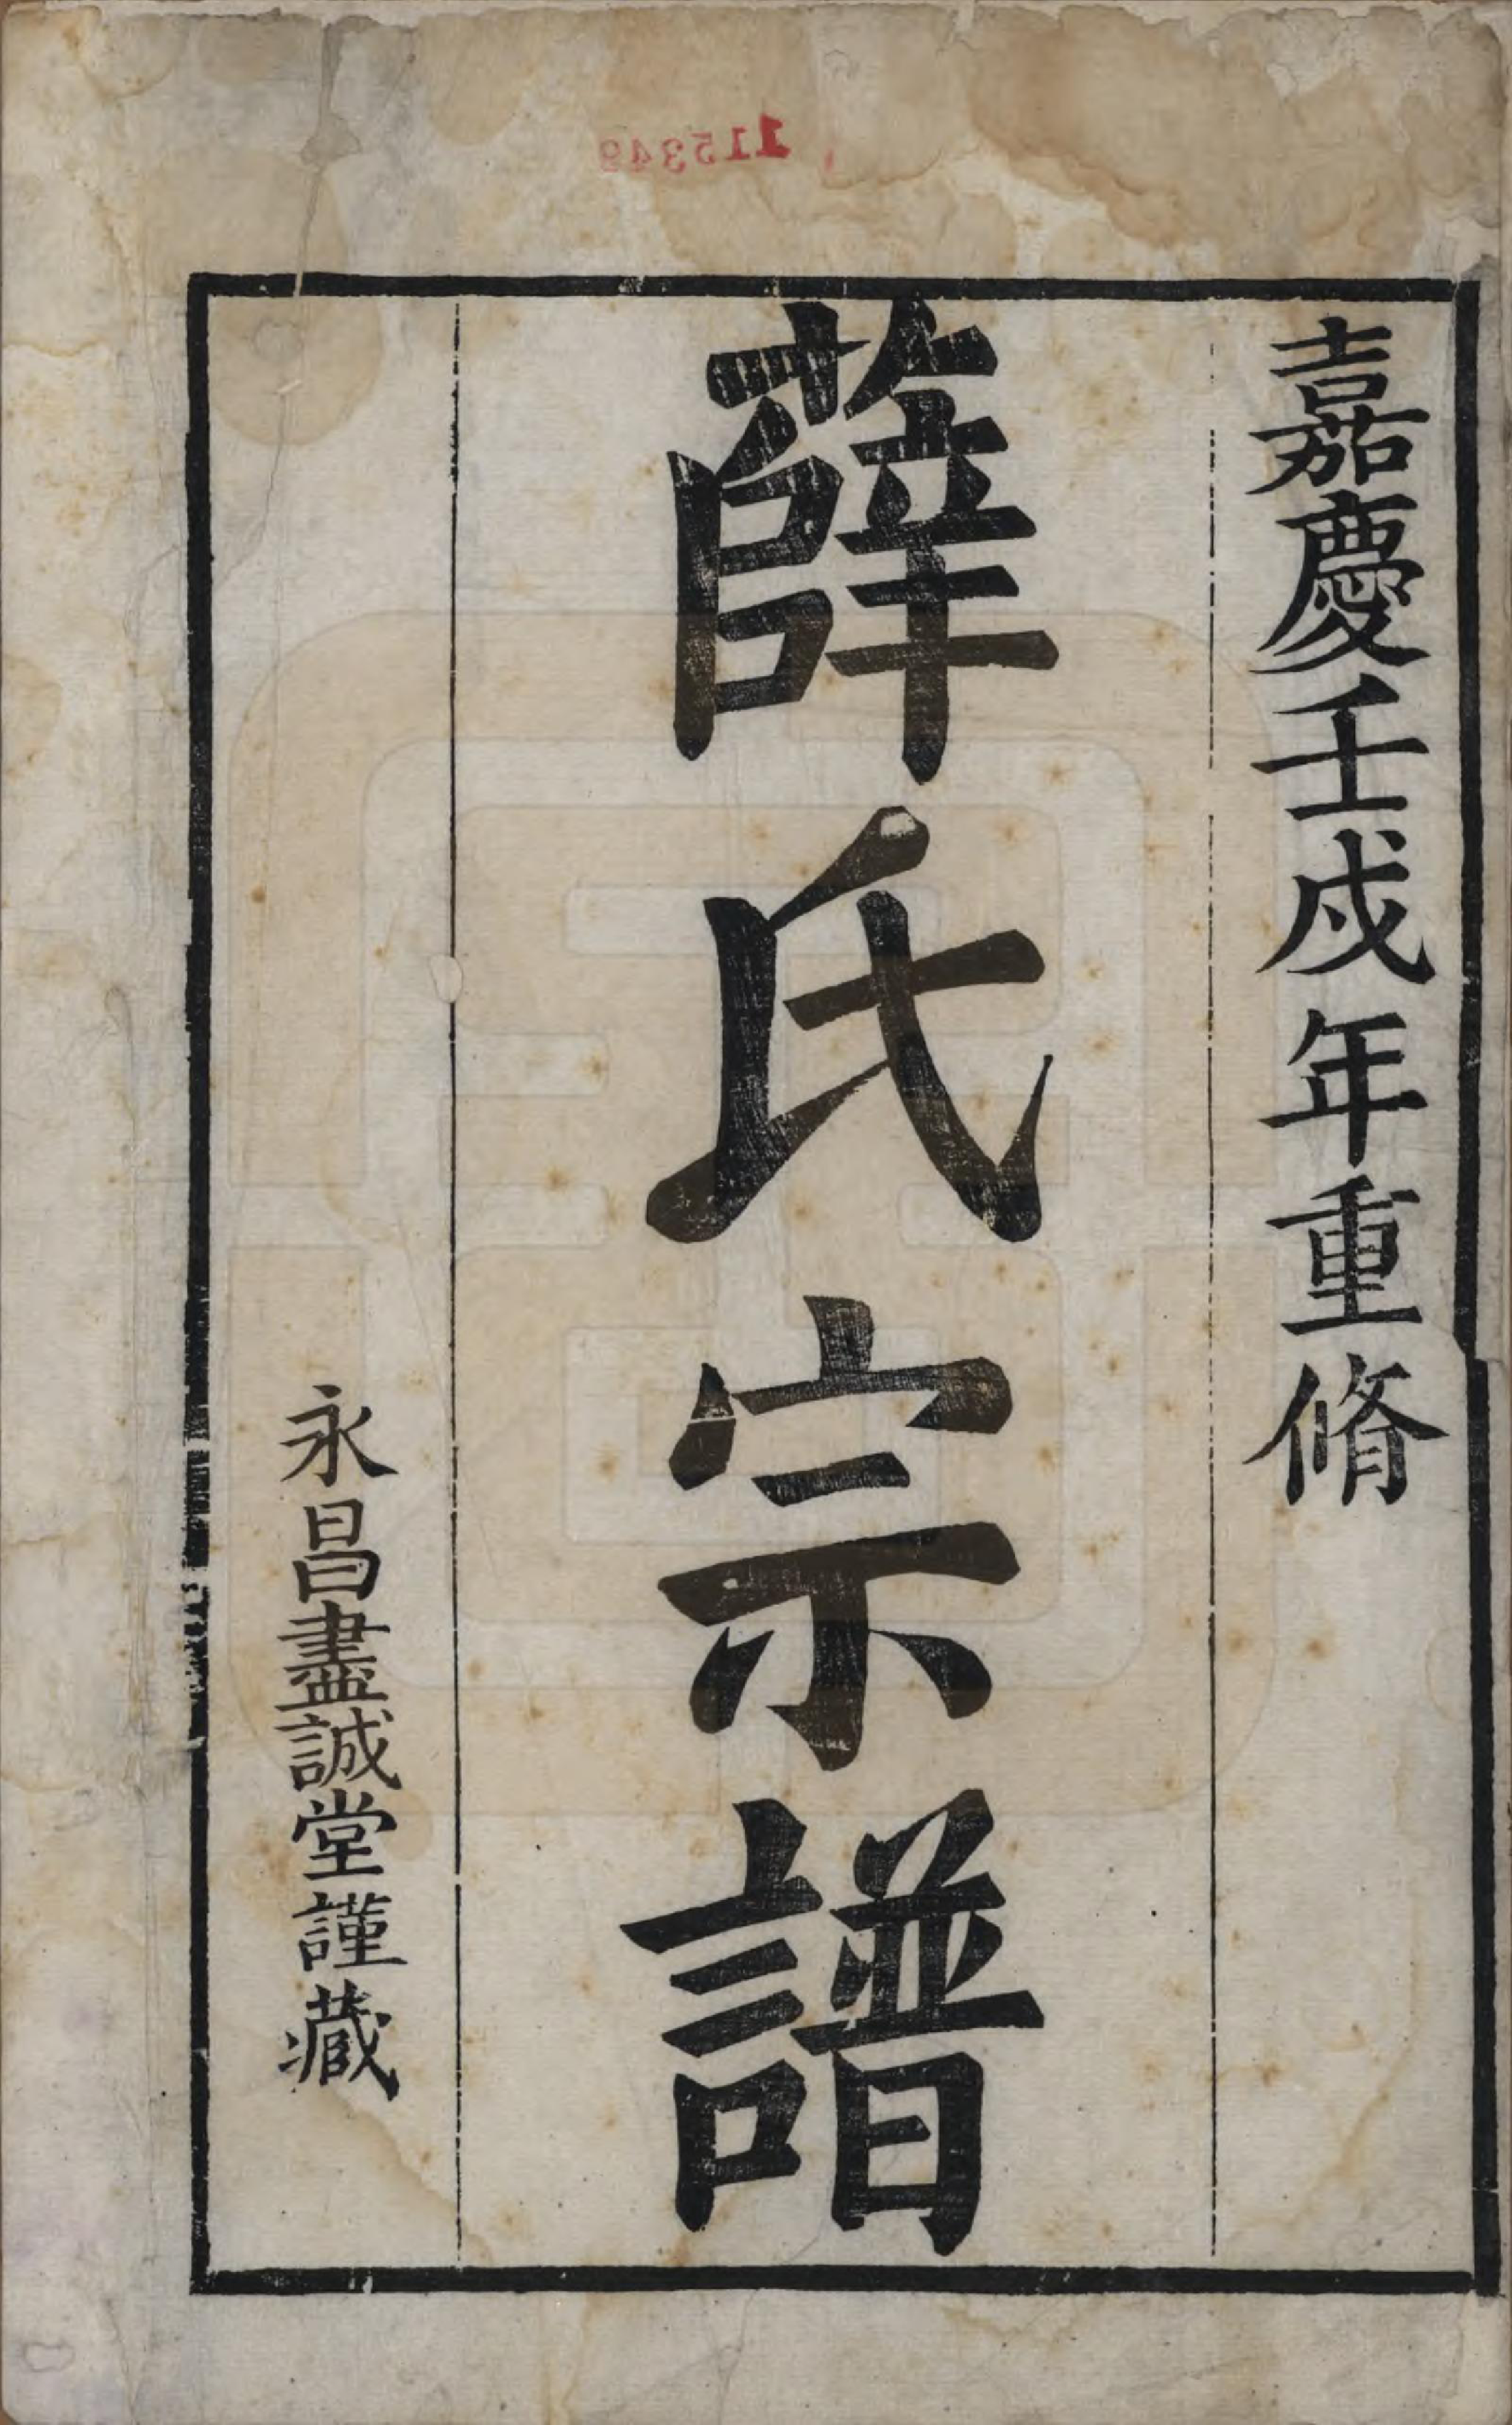 嘉慶壬戌年重脩
薛氏宗譜
永昌盡誠堂謹藏
115349